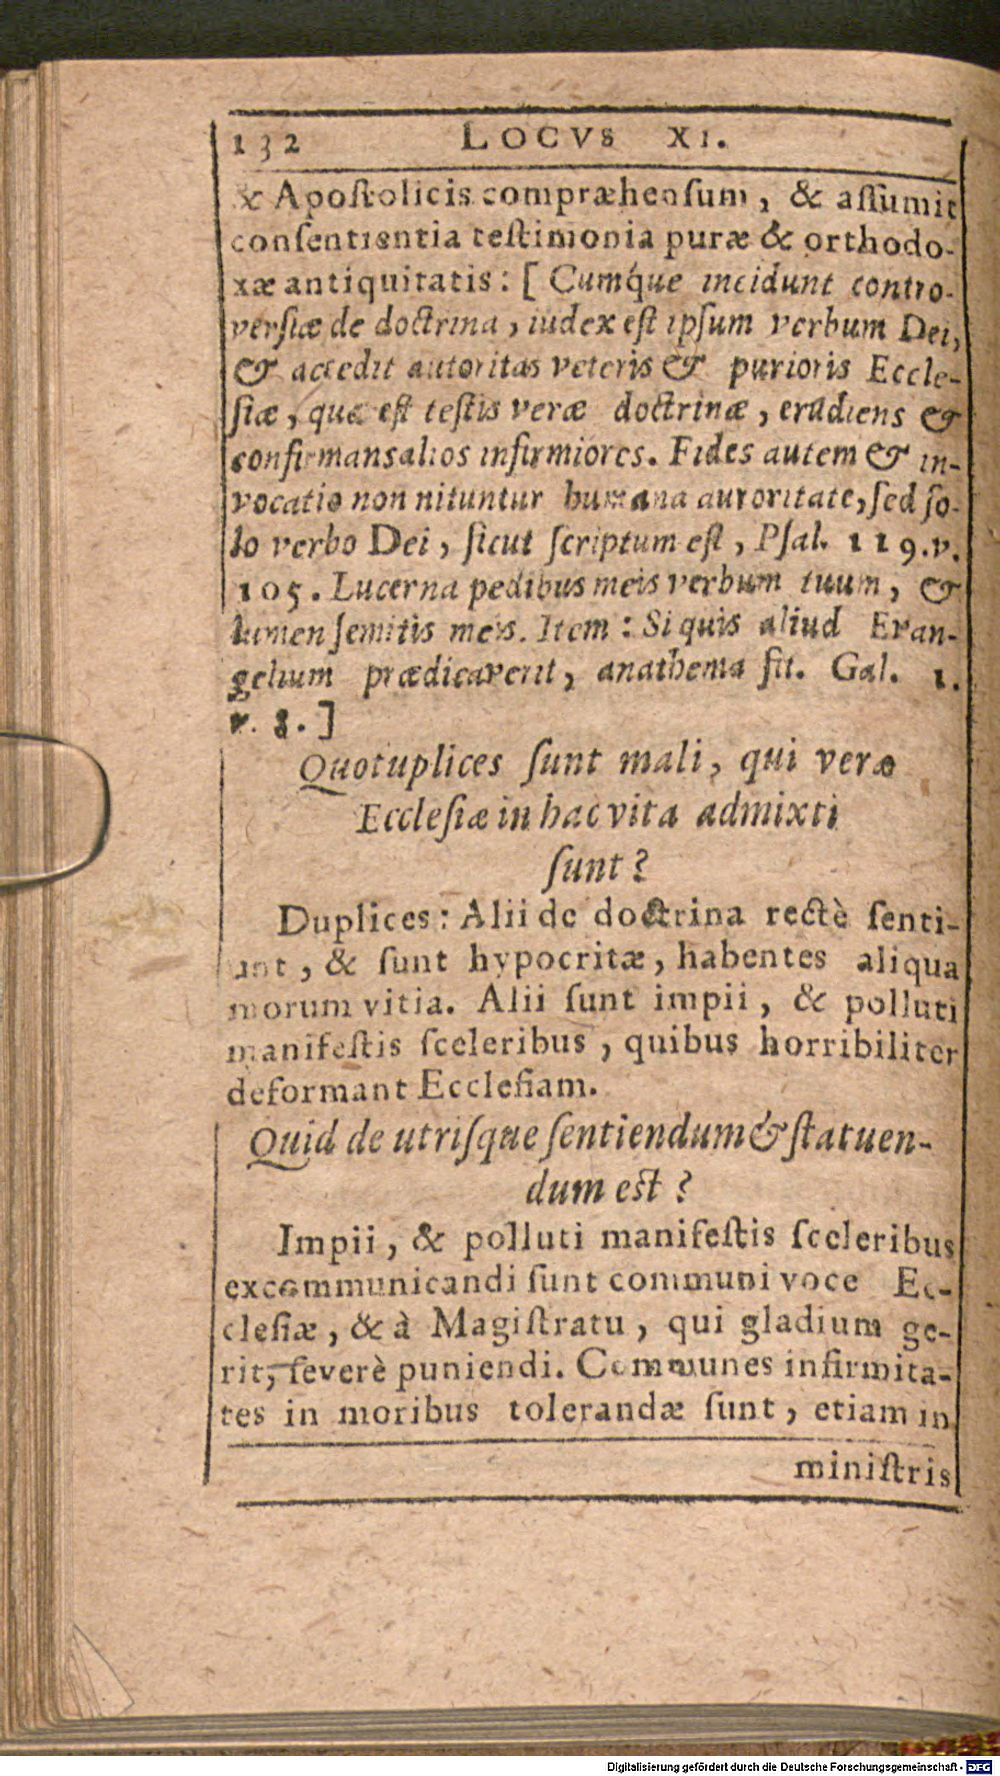 132 LOCVS XI.
& Apoſtolicis compræhenſum, & aſſumit
conſentientia teſtimonia puræ & orthodo-
xæ antiquitatis: [ Cumq́ue incidunt contro-
verſiæ de doctrina, iudex eſt ipſum verbum Dei,
& accedit autoritas veteris & purioris Eccle-
ſiæ, quæ eſt teſtis veræ doctrinæ, erudiens &
confirmans alios infirmiores. Fides autem & in-
vocatio non nituntur humana autoritate, ſed ſo-
lo verbo Dei, ſicut ſcriptum eſt, Pſal. 119. v.
105. Lucerna pedibus meis verbum tuum, &
lumen ſemitis meis. Item: Si quis aliud Evan-
gelium prædicaverit, anathema ſit. Gal. 1.
v. 8. ]
Quotuplices ſunt mali, qui veræ
Eccleſiæ in hac vita admixti
ſunt?
Duplices: Alii de doctrina rectè ſenti-
unt, & ſunt hypocritæ, habentes aliqua
morum vitia. Alii ſunt impii, & polluti
manifeſtis ſceleribus, quibus horribiliter
deformant Eccleſiam.
Quid de utriſque ſentiendum & ſtatuen-
dum eſt?
Impii, & polluti manifeſtis ſceleribus
excommunicandi ſunt communi voce Ec-
cleſiæ, & à Magiſtratu, qui gladium ge-
rit, ſeverè puniendi. Communes infirmita-
tes in moribus tolerandæ ſunt, etiam in
miniſtris
Digitalisierung gefördert durch die Deutsche Forschungsgemeinschaft - DFG